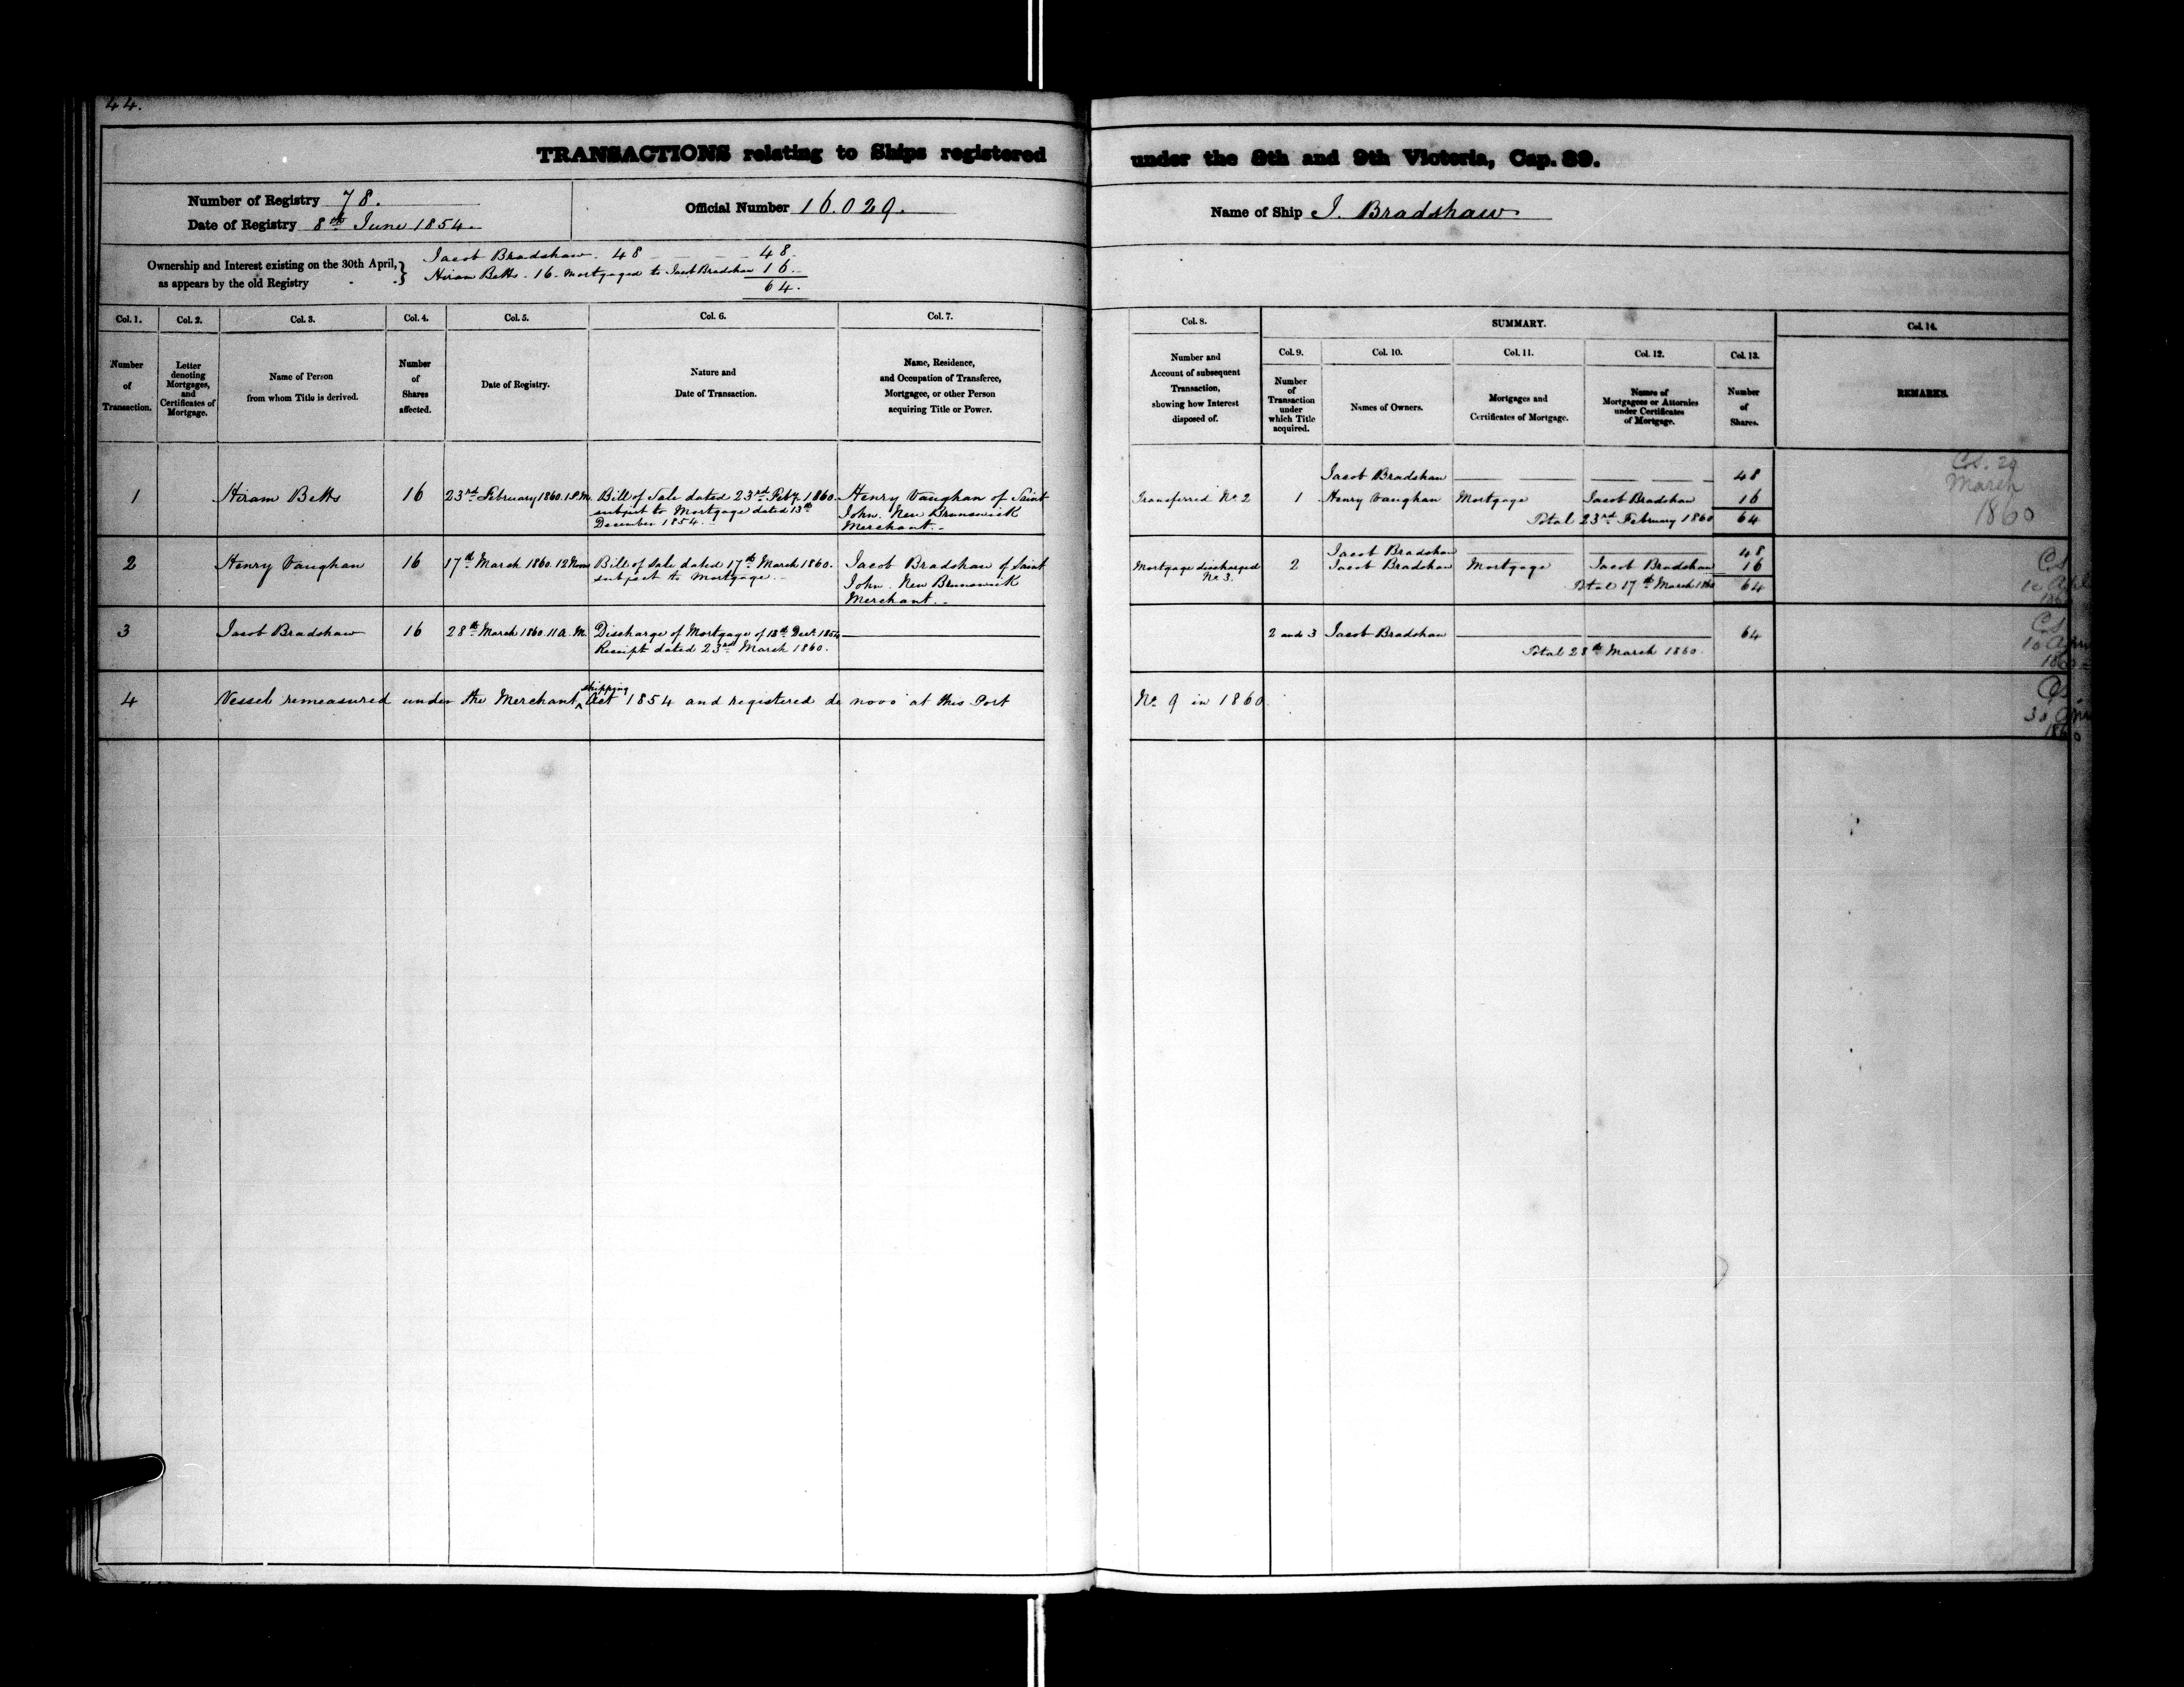 44.
TRANSACTIONS relating to Ships registered under the 8th and 9th Victoria, Cap. 89.
Number of Registry 78.
Date of Registry 8th June 1854.
Official Number 16.029.
Name of Ship J. Bradshaw
Ownership and Interest existing on the 30th April,
as appears by the old Registry - -
Jacob Bradshaw. 48 - - - - 48.
Hiram Betts. 16. Mortgaged to Jacob Bradshaw 16.
64.
Col. 1. Col. 2. Col. 3. Col. 4. Col. 5. Col. 6. Col. 7. Col. 8. SUMMARY. Col. 14.
Col. 9. Col. 10. Col. 11. Col. 12. Col. 13.
Number
of
Transaction.
Letter
denoting
Mortgages,
and
Certificates of
Mortgage.
Name of Person
from whom Title is derived.
Number
of
Shares
affected.
Date of Registry.
Nature and
Date of Transaction.
Name, Residence,
and Occupation of Transferee,
Mortgagee, or other Person
acquiring Title or Power.
Number and
Account of subsequent
Transaction,
showing how Interest
disposed of.
Number
of
Transaction
under
which Title
acquired.
Names of Owners.
Mortgages and
Certificates of Mortgage.
Names of
Mortgagees or Attornies
under Certificates
of Mortgage.
Number
of
Shares.
REMARKS.
1 Hiram Betts 16 23rd February 1860. 1 P.M. Bill of Sale dated 23rd Feby 1860.
subject to Mortgage dated 13th
December 1854.
Henry Vaughan of Saint
John. New Brunswick
Merchant.
Transferred No. 2
Jacob Bradshaw 48
1 Henry Vaughan Mortgage Jacob Bradshaw 16
Total 23rd February 1860 64
29
March
1860
2 Henry Vaughan 16 17th March 1860. 12 Noon Bill of Sale dated 17th March 1860.
subject to Mortgage.
Jacob Bradshaw of Saint
John. New Brunswick
Merchant.
Mortgage discharged
No. 3.
Jacob Bradshaw 48
2 Jacob Bradshaw Mortgage Jacob Bradshaw 16
Total 17th March 1860 64
3 Jacob Bradshaw 16 28th March 1860. 11 A.M. Discharge of Mortgage of 13th Decr. 1854
Receipt dated 23rd March 1860.
2 and 3 Jacob Bradshaw 64
Total 28th March 1860.
10 April
1860
4 Vessel remeasured under the Merchant shipping Act 1854 and registered de novo at this Port No. 9 in 1860.
30 April
1860